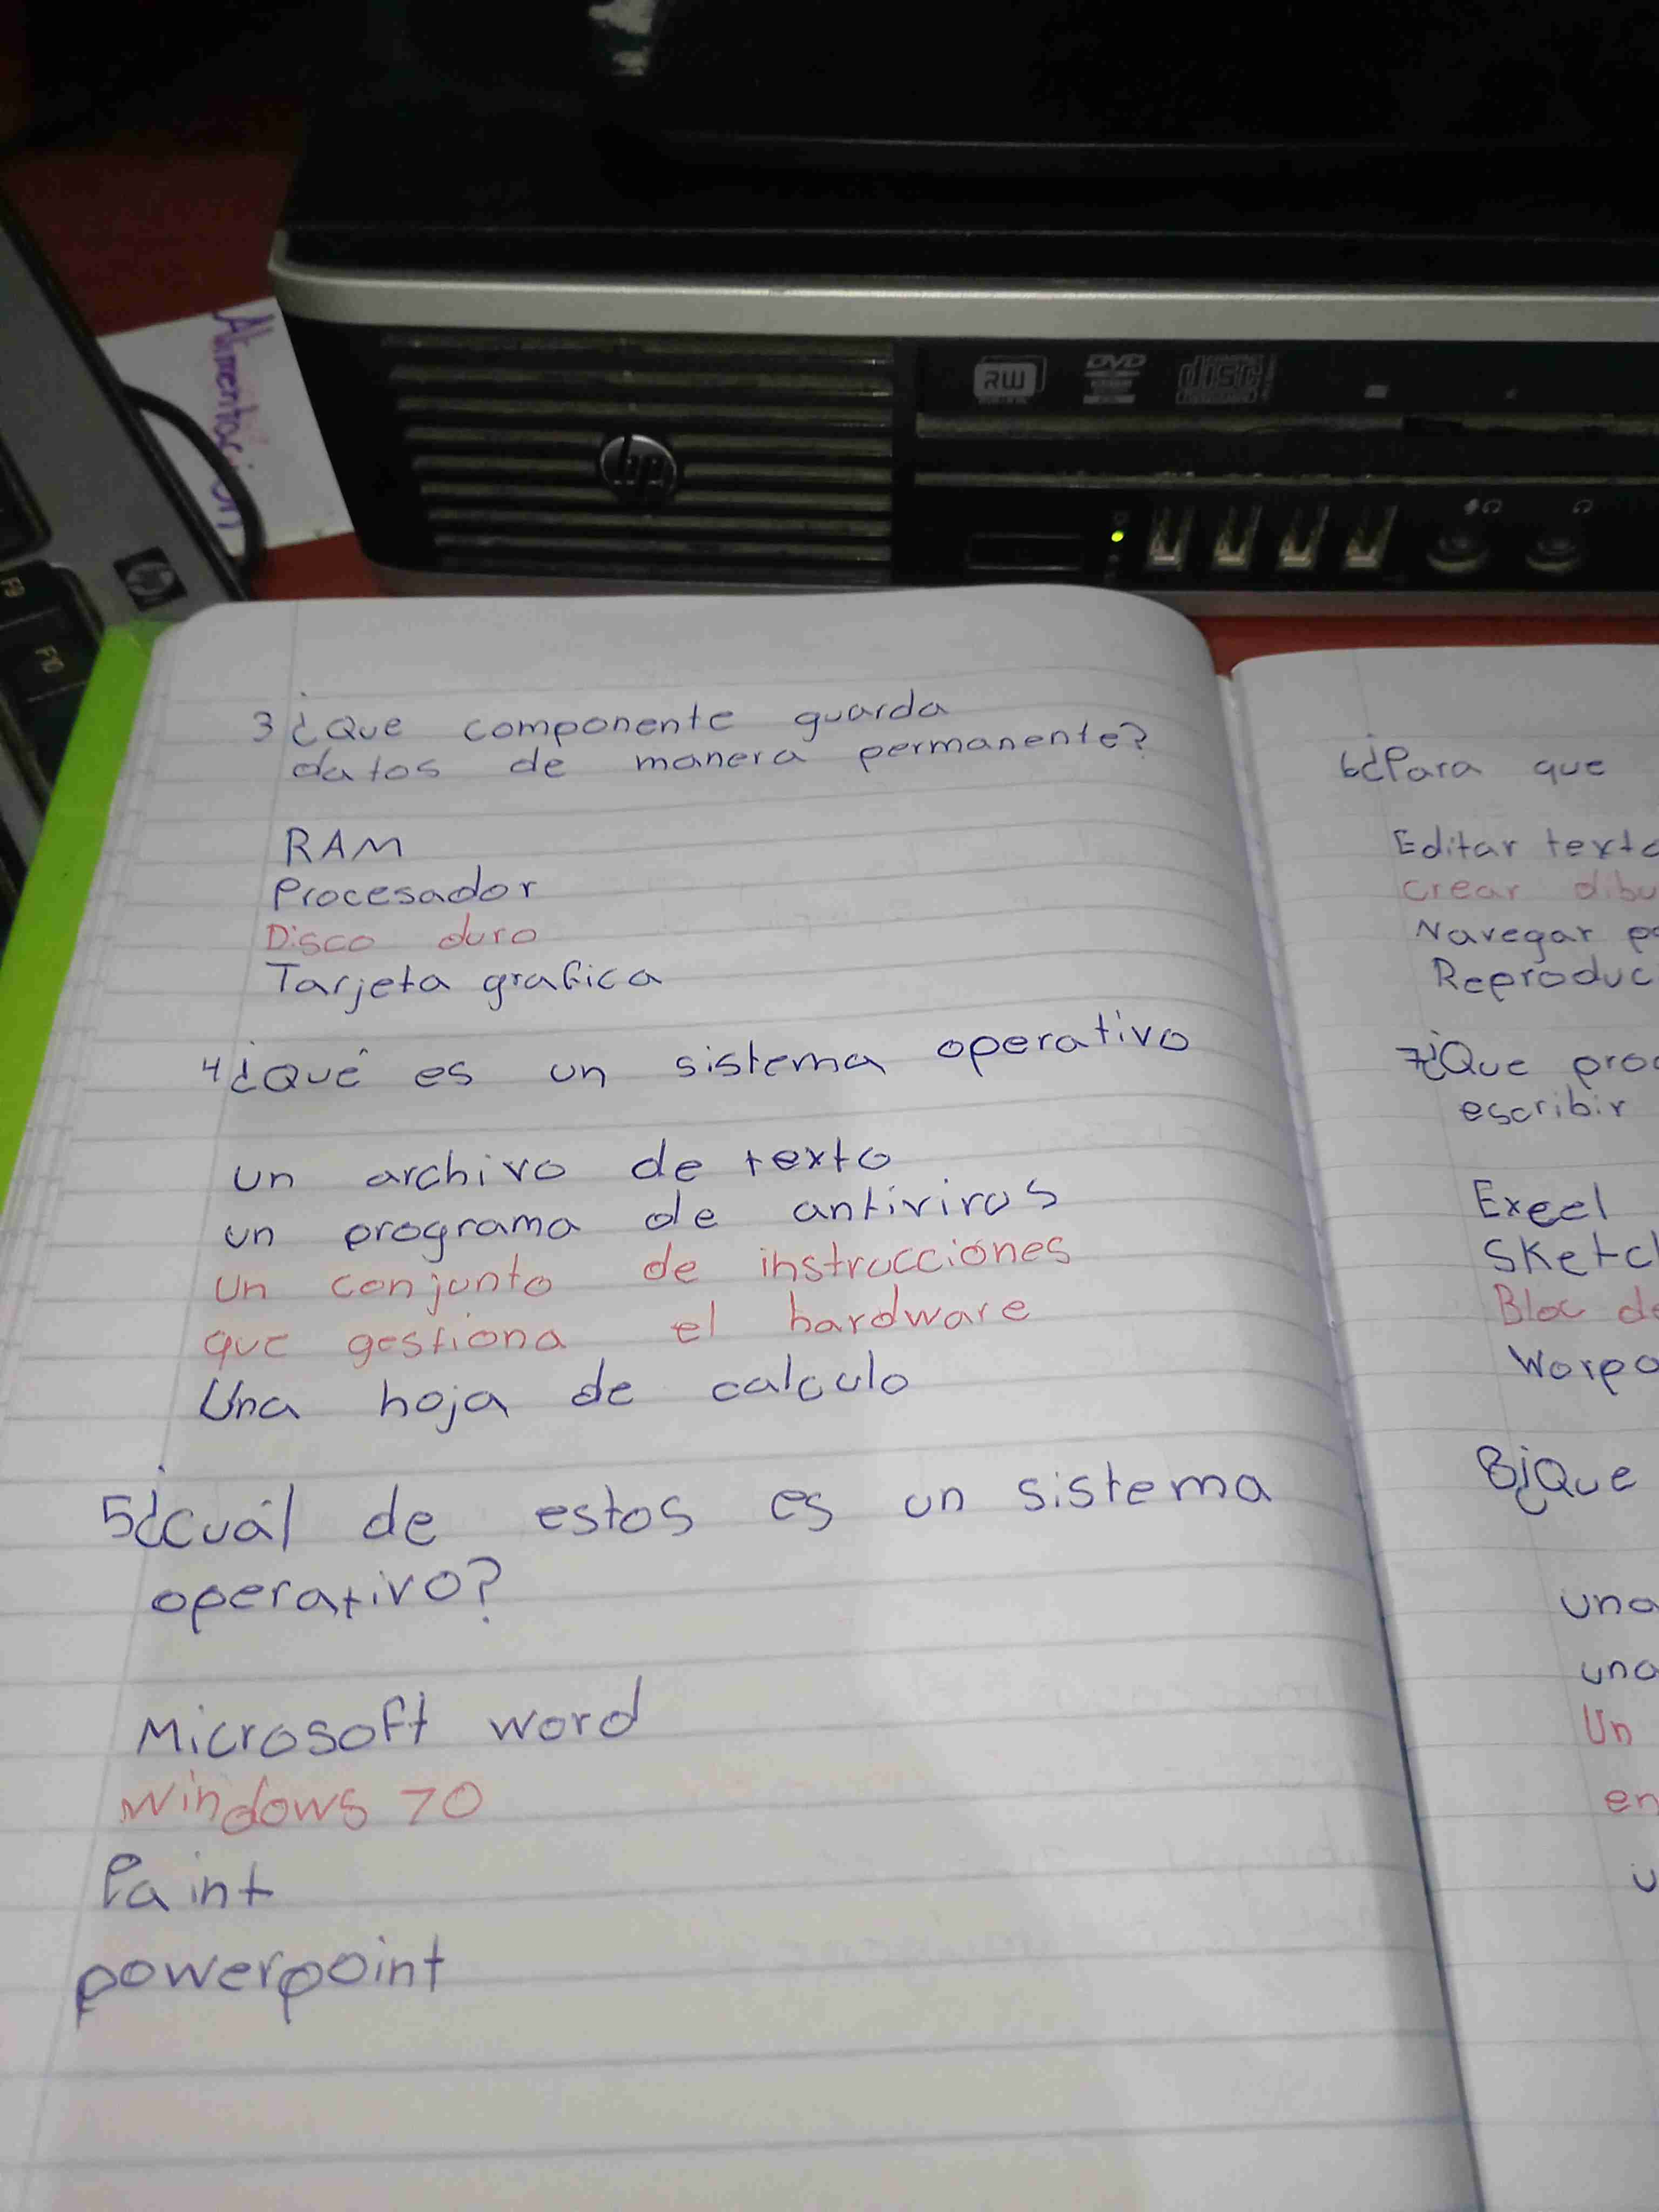 Alimentación
RW
DVD
disc
hp
F9
F10
3 ¿Que componente guarda
datos de manera permanente?
RAM
Procesador
Disco duro
Tarjeta grafica
4 ¿Qué es un sistema operativo
un archivo de texto
un programa de antivirus
Un conjunto de instrucciones
que gestiona el hardware
Una hoja de calculo
5 ¿cuál de estos es un sistema
operativo?
Microsoft word
Windows 70
Paint
powerpoint
6 ¿Para que
Editar texto
crear dibu
Navegar po
Reproduc
7 ¿Que pro
escribir
Excel
Sketc
Bloc de
Worpa
8 ¿Que
una
una
Un
en
u